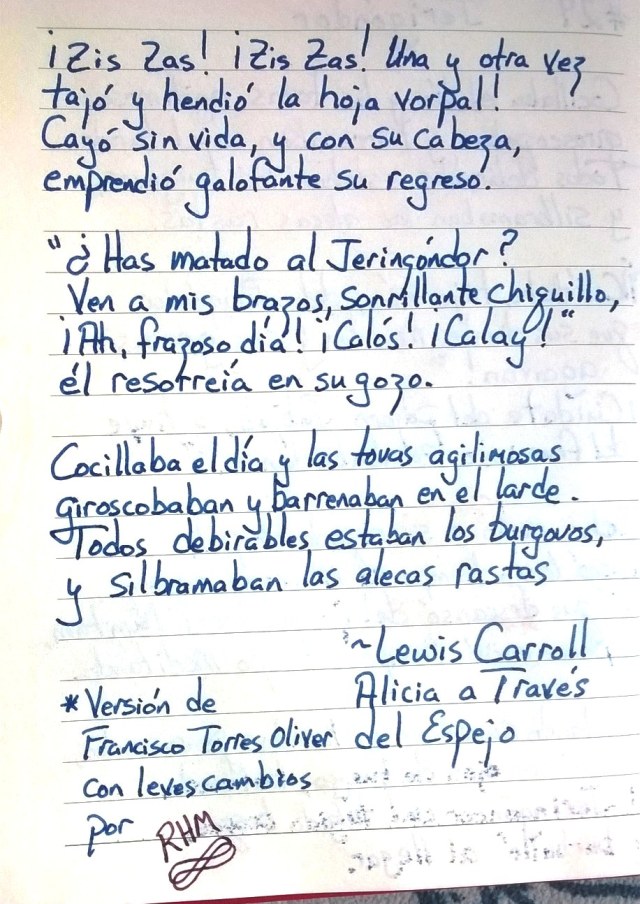 ¡Zis Zas! ¡Zis Zas! Una y otra vez
tajó y hendió la hoja vorpal!
Cayó sin vida, y con su cabeza,
emprendió galofante su regreso.
"¿Has matado al Jeringóndor?
Ven a mis brazos, sonrillante chiquillo,
¡Ah, frazoso día! ¡Calós! ¡Calay!"
él resofreía en su gozo.
Cocillaba el día y las tovas agilimosas
giroscobaban y barrenaban en el larde.
Todos debirables estaban los burgovos,
y silbramaban las alecas rastas
~Lewis Carroll
Alicia a Través
del Espejo
*Versión de
Francisco Torres Oliver
con leves cambios
por RHM